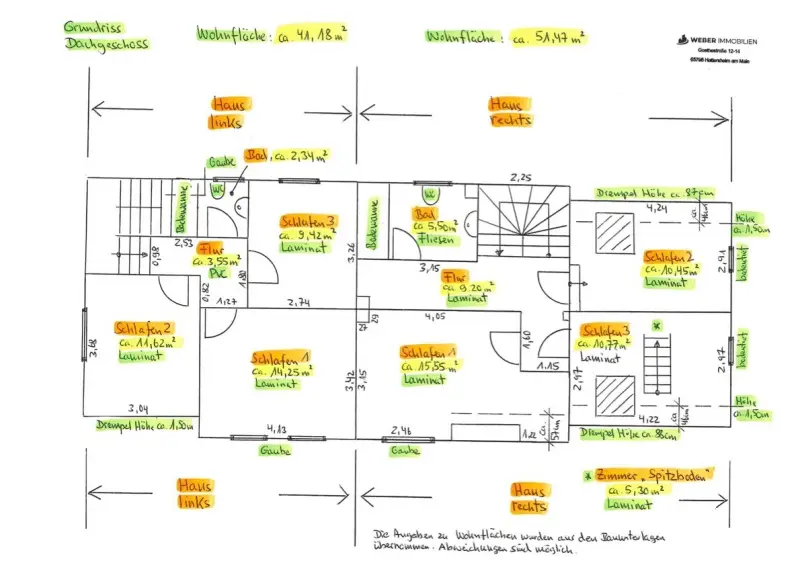 Grundriss
Dachgeschoss
Wohnfläche: ca. 41,18 m²
Wohnfläche: ca. 51,47 m²
WEBER IMMOBILIEN
Goethestraße 12-14
65795 Hattersheim am Main
Haus
links
Haus
rechts
Gaube
Bad, ca 2,34 m²
2,25
Drempel Höhe ca. 87cm
Badewanne
WC
Badewanne
WC
4,24
ca.
46cm
Höhe
ca 1,50m
Schlafen 3
ca 9,42 m²
Laminat
Bad
ca 5,50 m²
Fliesen
2,53
0,98
Flur
ca 3,55 m²
PVC
3,26
3,15
Schlafen 2
ca 10,45 m²
Laminat
2,91
bodentief
Flur
ca 9.20 m²
Laminat
0,82
1,80
1,27
2,74
27
29
4,05
Schlafen 2
ca. 11,62 m²
Laminat
3,78
Schlafen 1
ca 14,25 m²
Laminat
3,42
3,15
Schlafen 1
ca. 15,55 m²
Laminat
1,60
1.15
Schlafen 3
ca 10,77 m²
Laminat
*
2,97
2,47
bodentief
3,04
Drempel Höhe ca. 1,50m
4,13
Gaube
2,46
Gaube
1,22
ca.
57cm
4,22
ca
46cm
Höhe
ca. 1,50m
Drempel Höhe ca. 86cm
Haus
links
Haus
rechts
* Zimmer „Spitzboden"
ca. 5,30 m²
Laminat
Die Angaben zu Wohnflächen wurden aus den Bauunterlagen
übernommen. Abweichungen sind möglich.